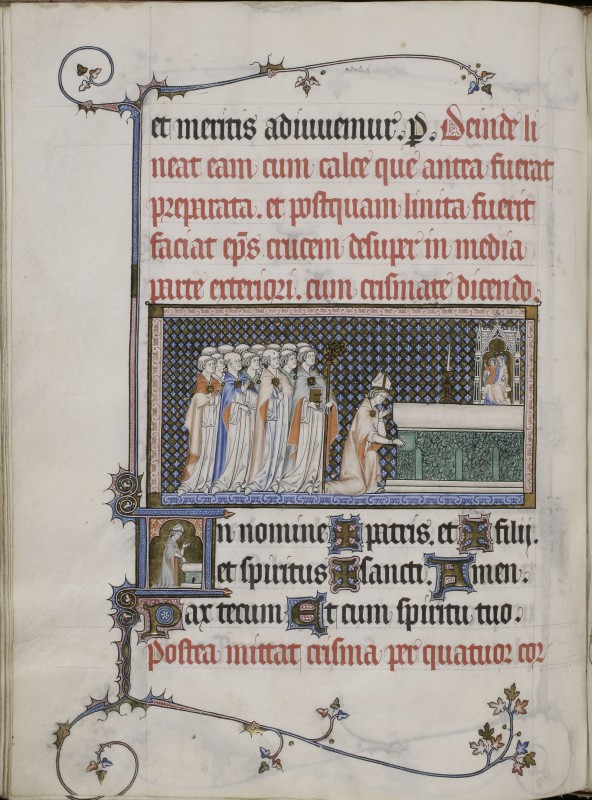 et meritis adiuuemur. p. Deinde li
neat eam cum calce que antea fuerat
preparata. et postquam linita fuerit
faciat ep̄s crucem desuper in media
parte exteriori. cum crismate dicendo.
In nomine ✠ patris. et ✠ filij.
et spiritus ✠ sancti. Amen.
Pax tecum Et cum spiritu tuo.
Postea mittat crisma per quatuor cor